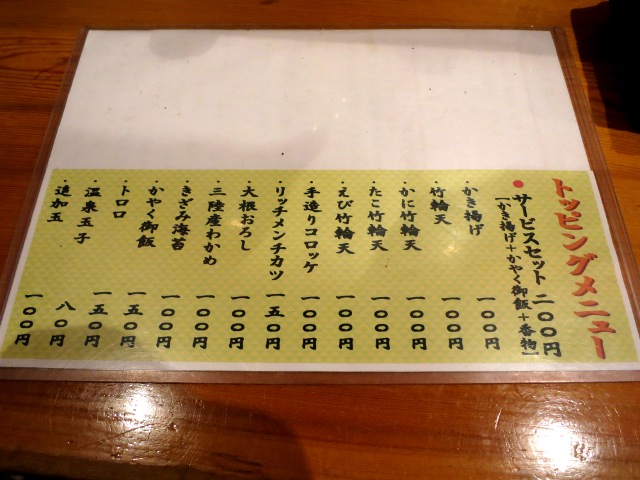 トッピングメニュー
●サービスセット 二〇〇円
[かき揚げ+かやく御飯+香物]
・かき揚げ 一〇〇円
・竹輪天 一〇〇円
・かに竹輪天 一〇〇円
・たこ竹輪天 一〇〇円
・えび竹輪天 一〇〇円
・手造りコロッケ 一〇〇円
・リッチメンチカツ 一五〇円
・大根おろし 一〇〇円
・三陸産わかめ 一〇〇円
・きざみ海苔 一〇〇円
・かやく御飯 一五〇円
・トロロ 一五〇円
・温泉玉子 八〇円
・追加玉 一〇〇円